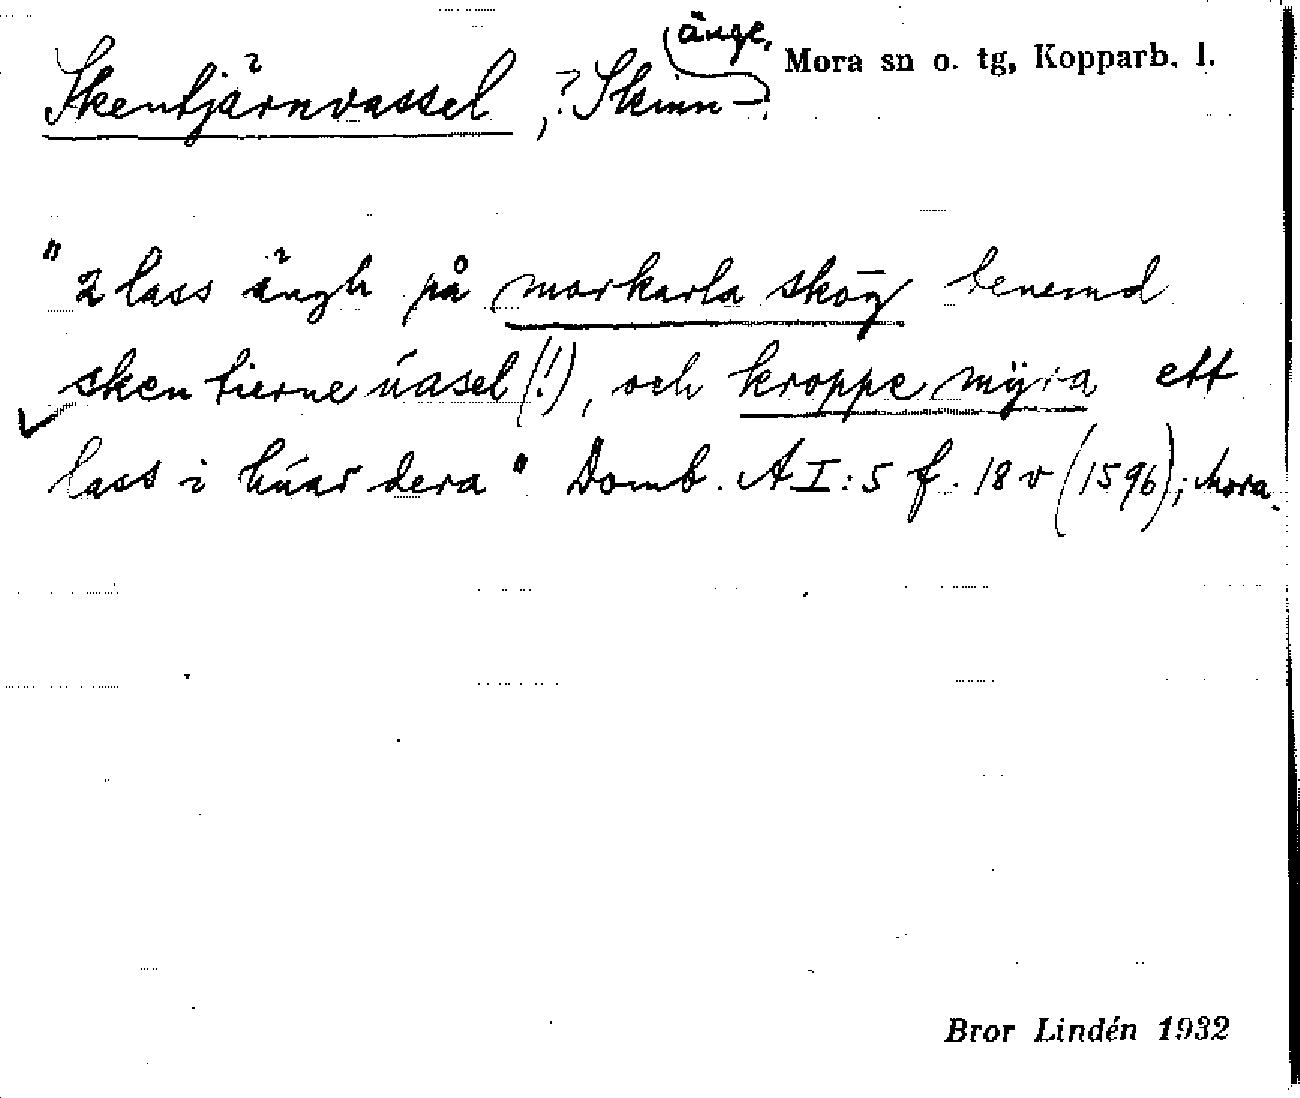 Skentjärnvassel, ? Skinn-? änge, Mora sn o. tg, Kopparb. l.
"2 lass ängh på morkarla skōg benemd
sken tierne úasel (!), och kroppe mÿra ett
lass i húar dera" Domb. A I:5 f. 18 v (1596); Mora.
Bror Lindén 1932